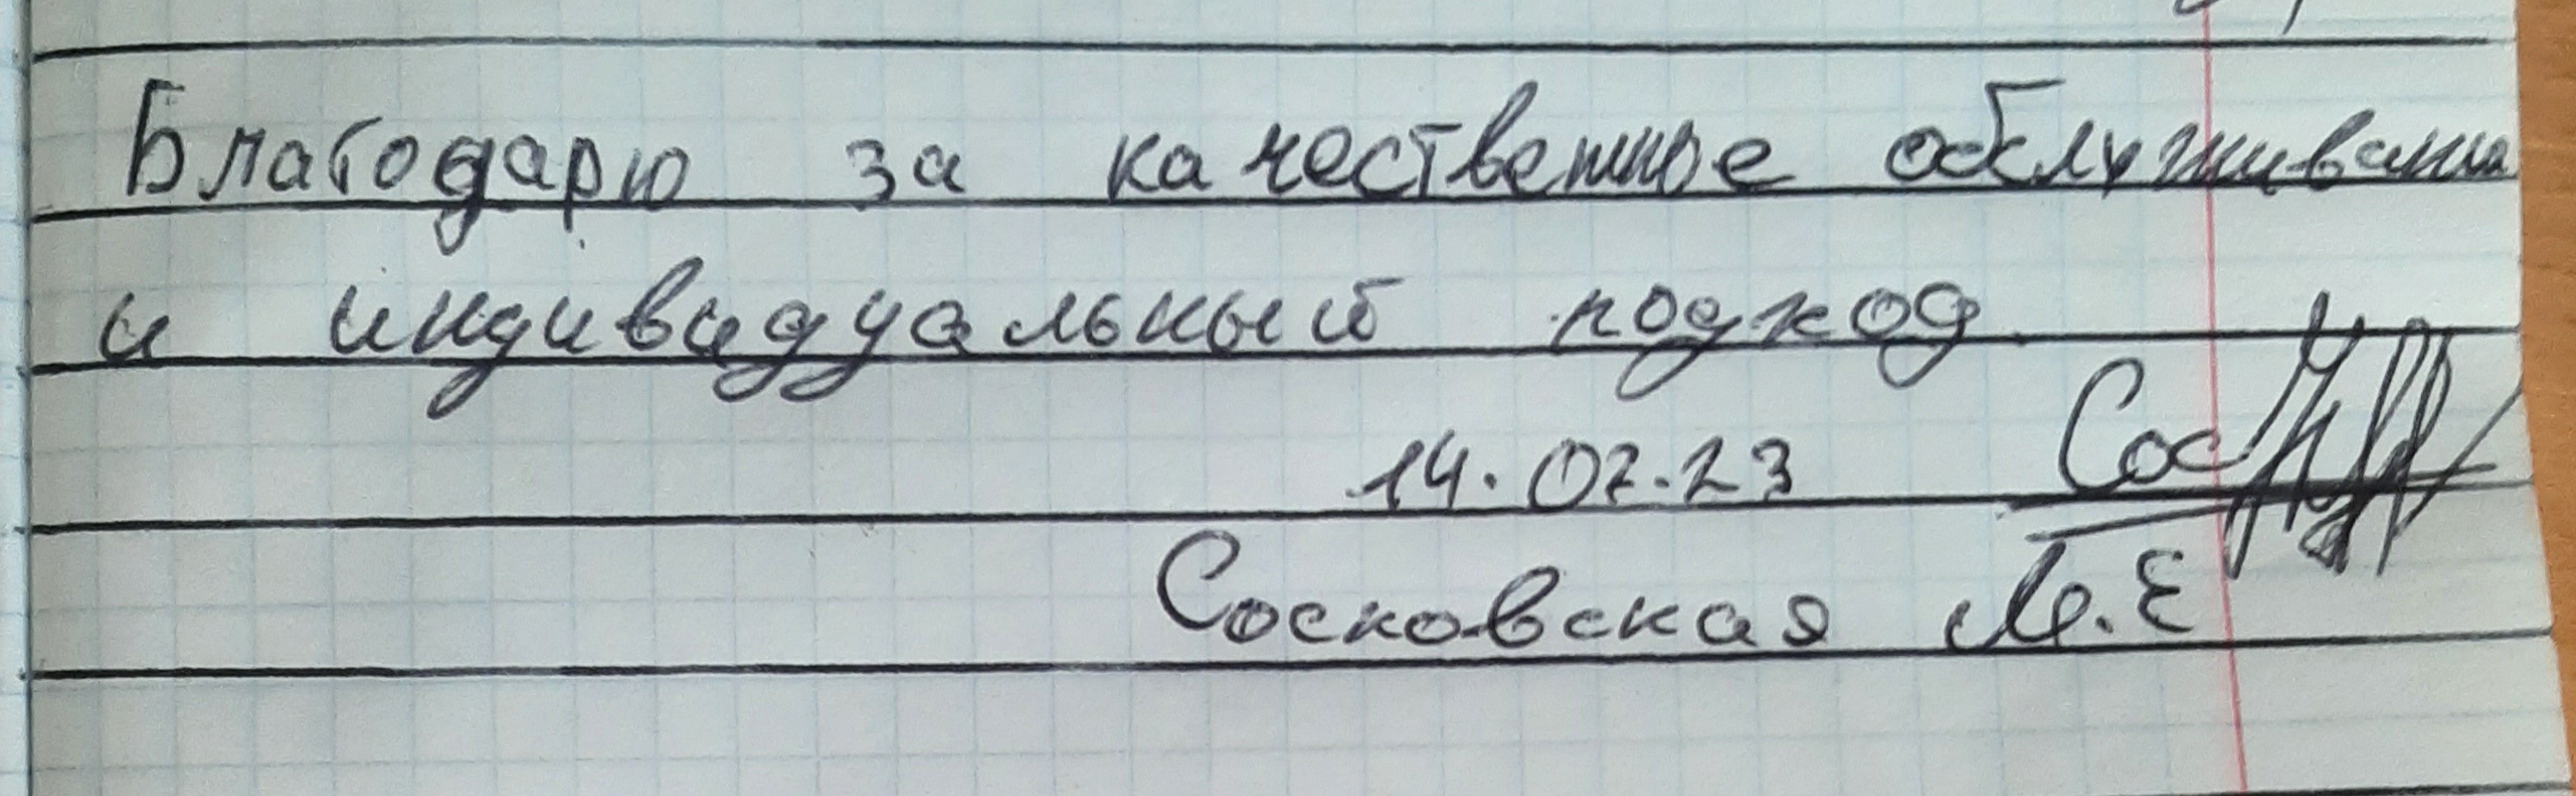 Благодарю за качественное обслуживание
и индивидуальный подход.
14.07.23
Сосковская М.Е